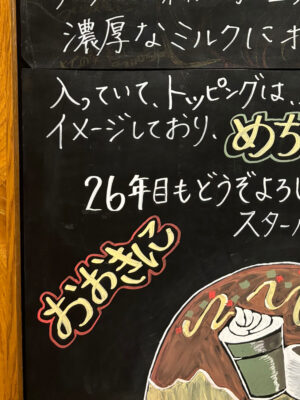 濃厚なミルクに
入っていて、トッピングは、
イメージしており、めち
26年目もどうぞよろし
スター
おおきに